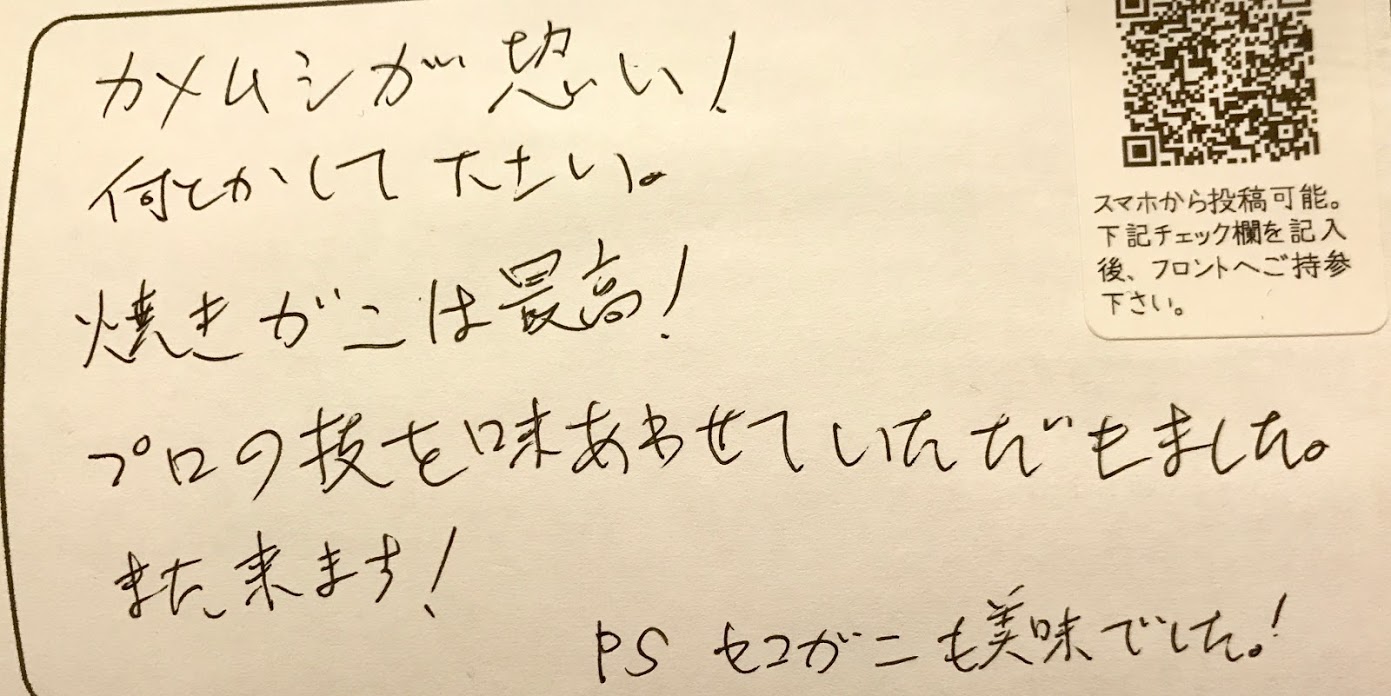 カメムシが恐い!
何とかして下さい。
焼きがには最高!
プロの技を味あわせていただきました。
また来ます!
PS セコガニも美味でした!
スマホから投稿可能。
下記チェック欄を記入
後、フロントへご持参
下さい。